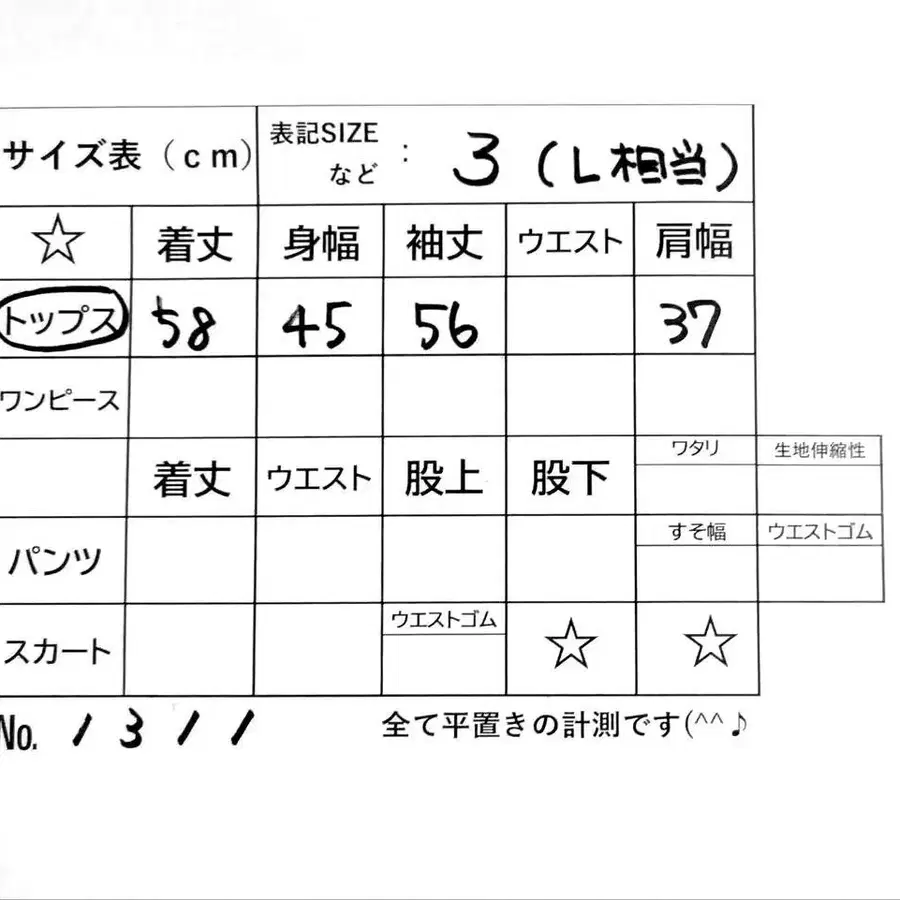 サイズ表（cm） 表記SIZEなど : 3 (L相当)
☆ 着丈 身幅 袖丈 ウエスト 肩幅
トップス 58 45 56 37
ワンピース
着丈 ウエスト 股上 股下 ワタリ 生地伸縮性
パンツ すそ幅 ウエストゴム
スカート ウエストゴム ☆ ☆
No. 1311 全て平置きの計測です(^^♪